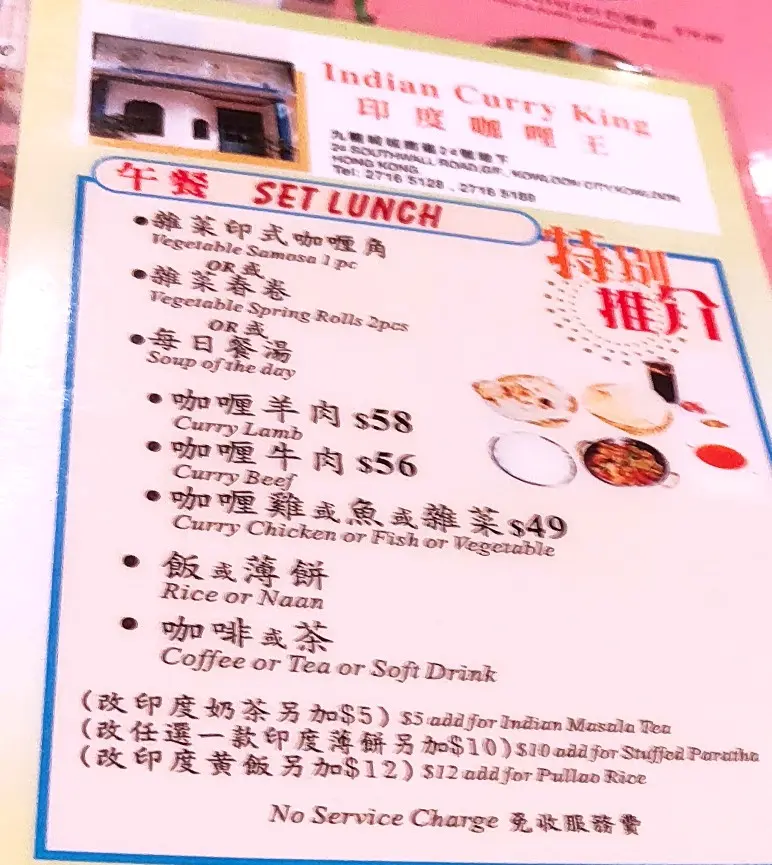 Indian Curry King
印度咖喱王
九龍城城南道24號地下
24 SOUTHWALL ROAD, G/F., KOWLOON CITY, KOWLOON
HONG KONG.
Tel: 2716 5128 , 2716 5188
午餐 SET LUNCH
特別
推介
•雜菜印式咖喱角
Vegetable Samosa 1 pc
OR 或
•雜菜春卷
Vegetable Spring Rolls 2pcs
OR 或
•每日餐湯
Soup of the day
•咖喱羊肉 $58
Curry Lamb
•咖喱牛肉 $56
Curry Beef
•咖喱雞或魚或雜菜 $49
Curry Chicken or Fish or Vegetable
•飯或薄餅
Rice or Naan
•咖啡或茶
Coffee or Tea or Soft Drink
(改印度奶茶另加$5) $5 add for Indian Masala Tea
(改任選一款印度薄餅另加$10) $10 add for Stuffed Paratha
(改印度黃飯另加$12) $12 add for Pullao Rice
No Service Charge 免收服務費